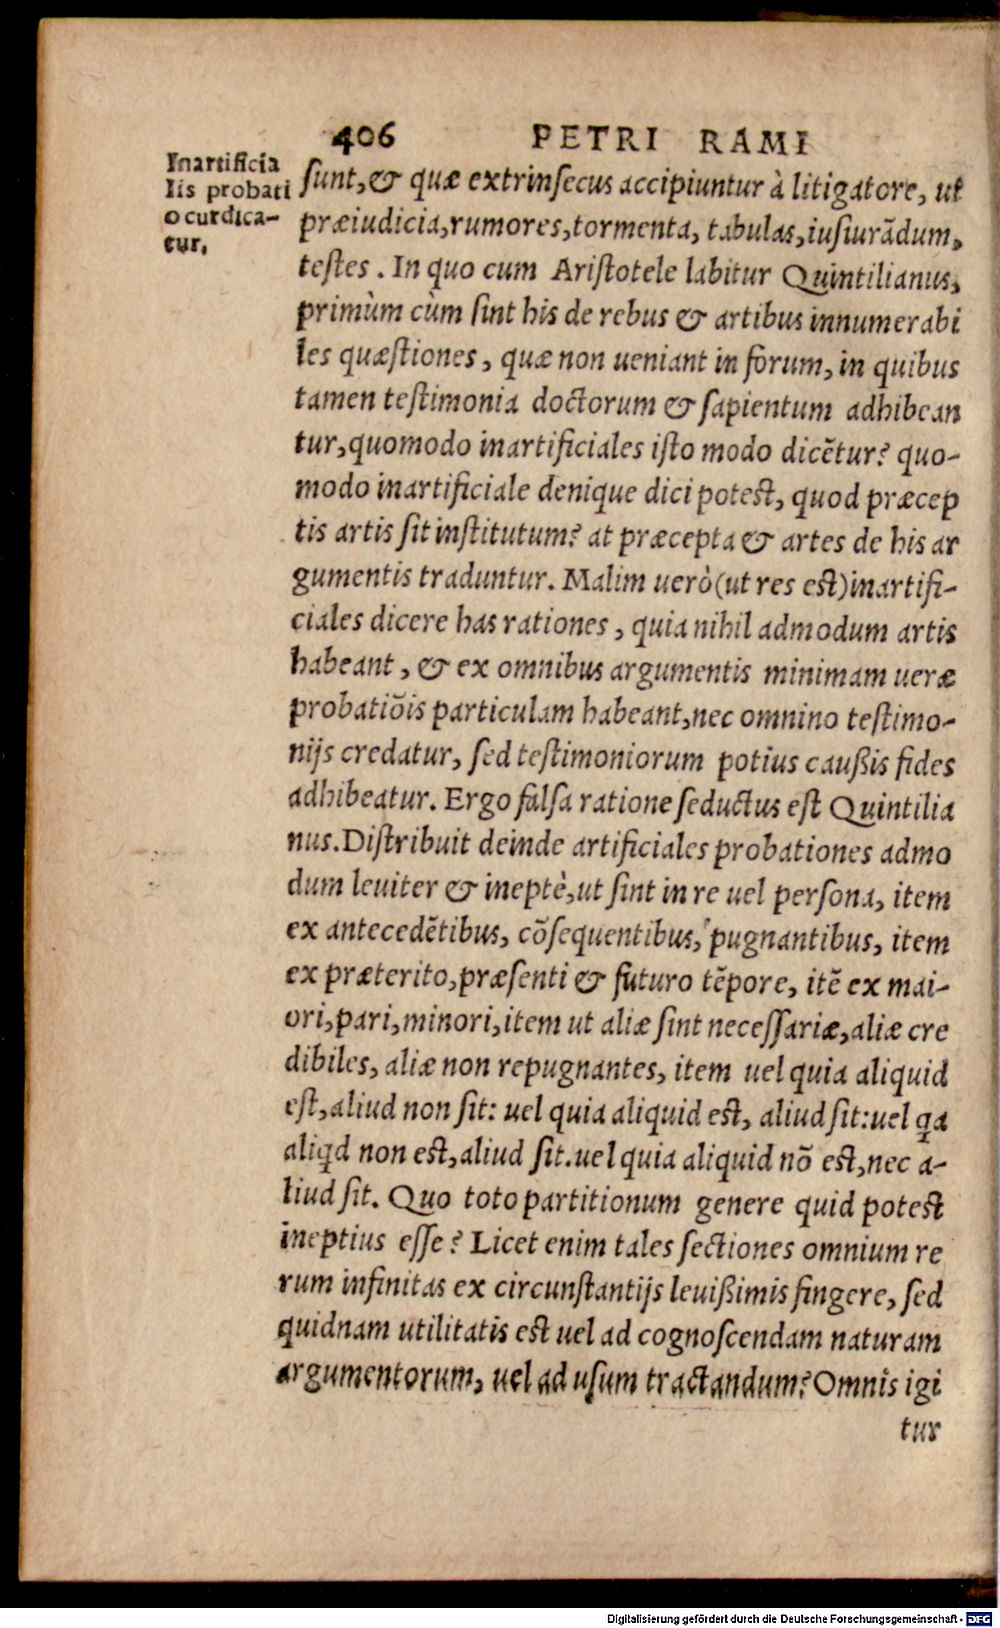 406 PETRI RAMI
Inartificia
lis probati
o cur dica-
tur.
sunt, & quæ extrinsecus accipiuntur à litigatore, ut
præiudicia, rumores, tormenta, tabulas, iusiurãdum,
testes. In quo cum Aristotele labitur Quintilianus,
primùm cùm sint his de rebus & artibus innumerabi
les quæstiones, quæ non ueniant in forum, in quibus
tamen testimonia doctorum & sapientum adhibean
tur, quomodo inartificiales isto modo dicẽtur? quo-
modo inartificiale denique dici potest, quod præcep
tis artis sit institutum? at præcepta & artes de his ar
gumentis traduntur. Malim uerò (ut res est) inartifi-
ciales dicere has rationes, quia nihil admodum artis
habeant, & ex omnibus argumentis minimam ueræ
probatiõis particulam habeant, nec omnino testimo-
nijs credatur, sed testimoniorum potius caußis fides
adhibeatur. Ergo falsa ratione seductus est Quintilia
nus. Distribuit deinde artificiales probationes admo
dum leuiter & ineptè, ut sint in re uel persona, item
ex antecedẽtibus, cõsequentibus, pugnantibus, item
ex præterito, præsenti & futuro tẽpore, itẽ ex mai-
ori, pari, minori, item ut aliæ sint necessariæ, aliæ cre
dibiles, aliæ non repugnantes, item uel quia aliquid
est, aliud non sit: uel quia aliquid est, aliud sit: uel q̃a
aliq̃d non est, aliud sit. uel quia aliquid nõ est, nec a-
liud sit. Quo toto partitionum genere quid potest
ineptius esse? Licet enim tales sectiones omnium re
rum infinitas ex circunstantijs leuißimis fingere, sed
quidnam utilitatis est uel ad cognoscendam naturam
argumentorum, uel ad usum tractandum? Omnis igi
tur
Digitalisierung gefördert durch die Deutsche Forschungsgemeinschaft - DFG